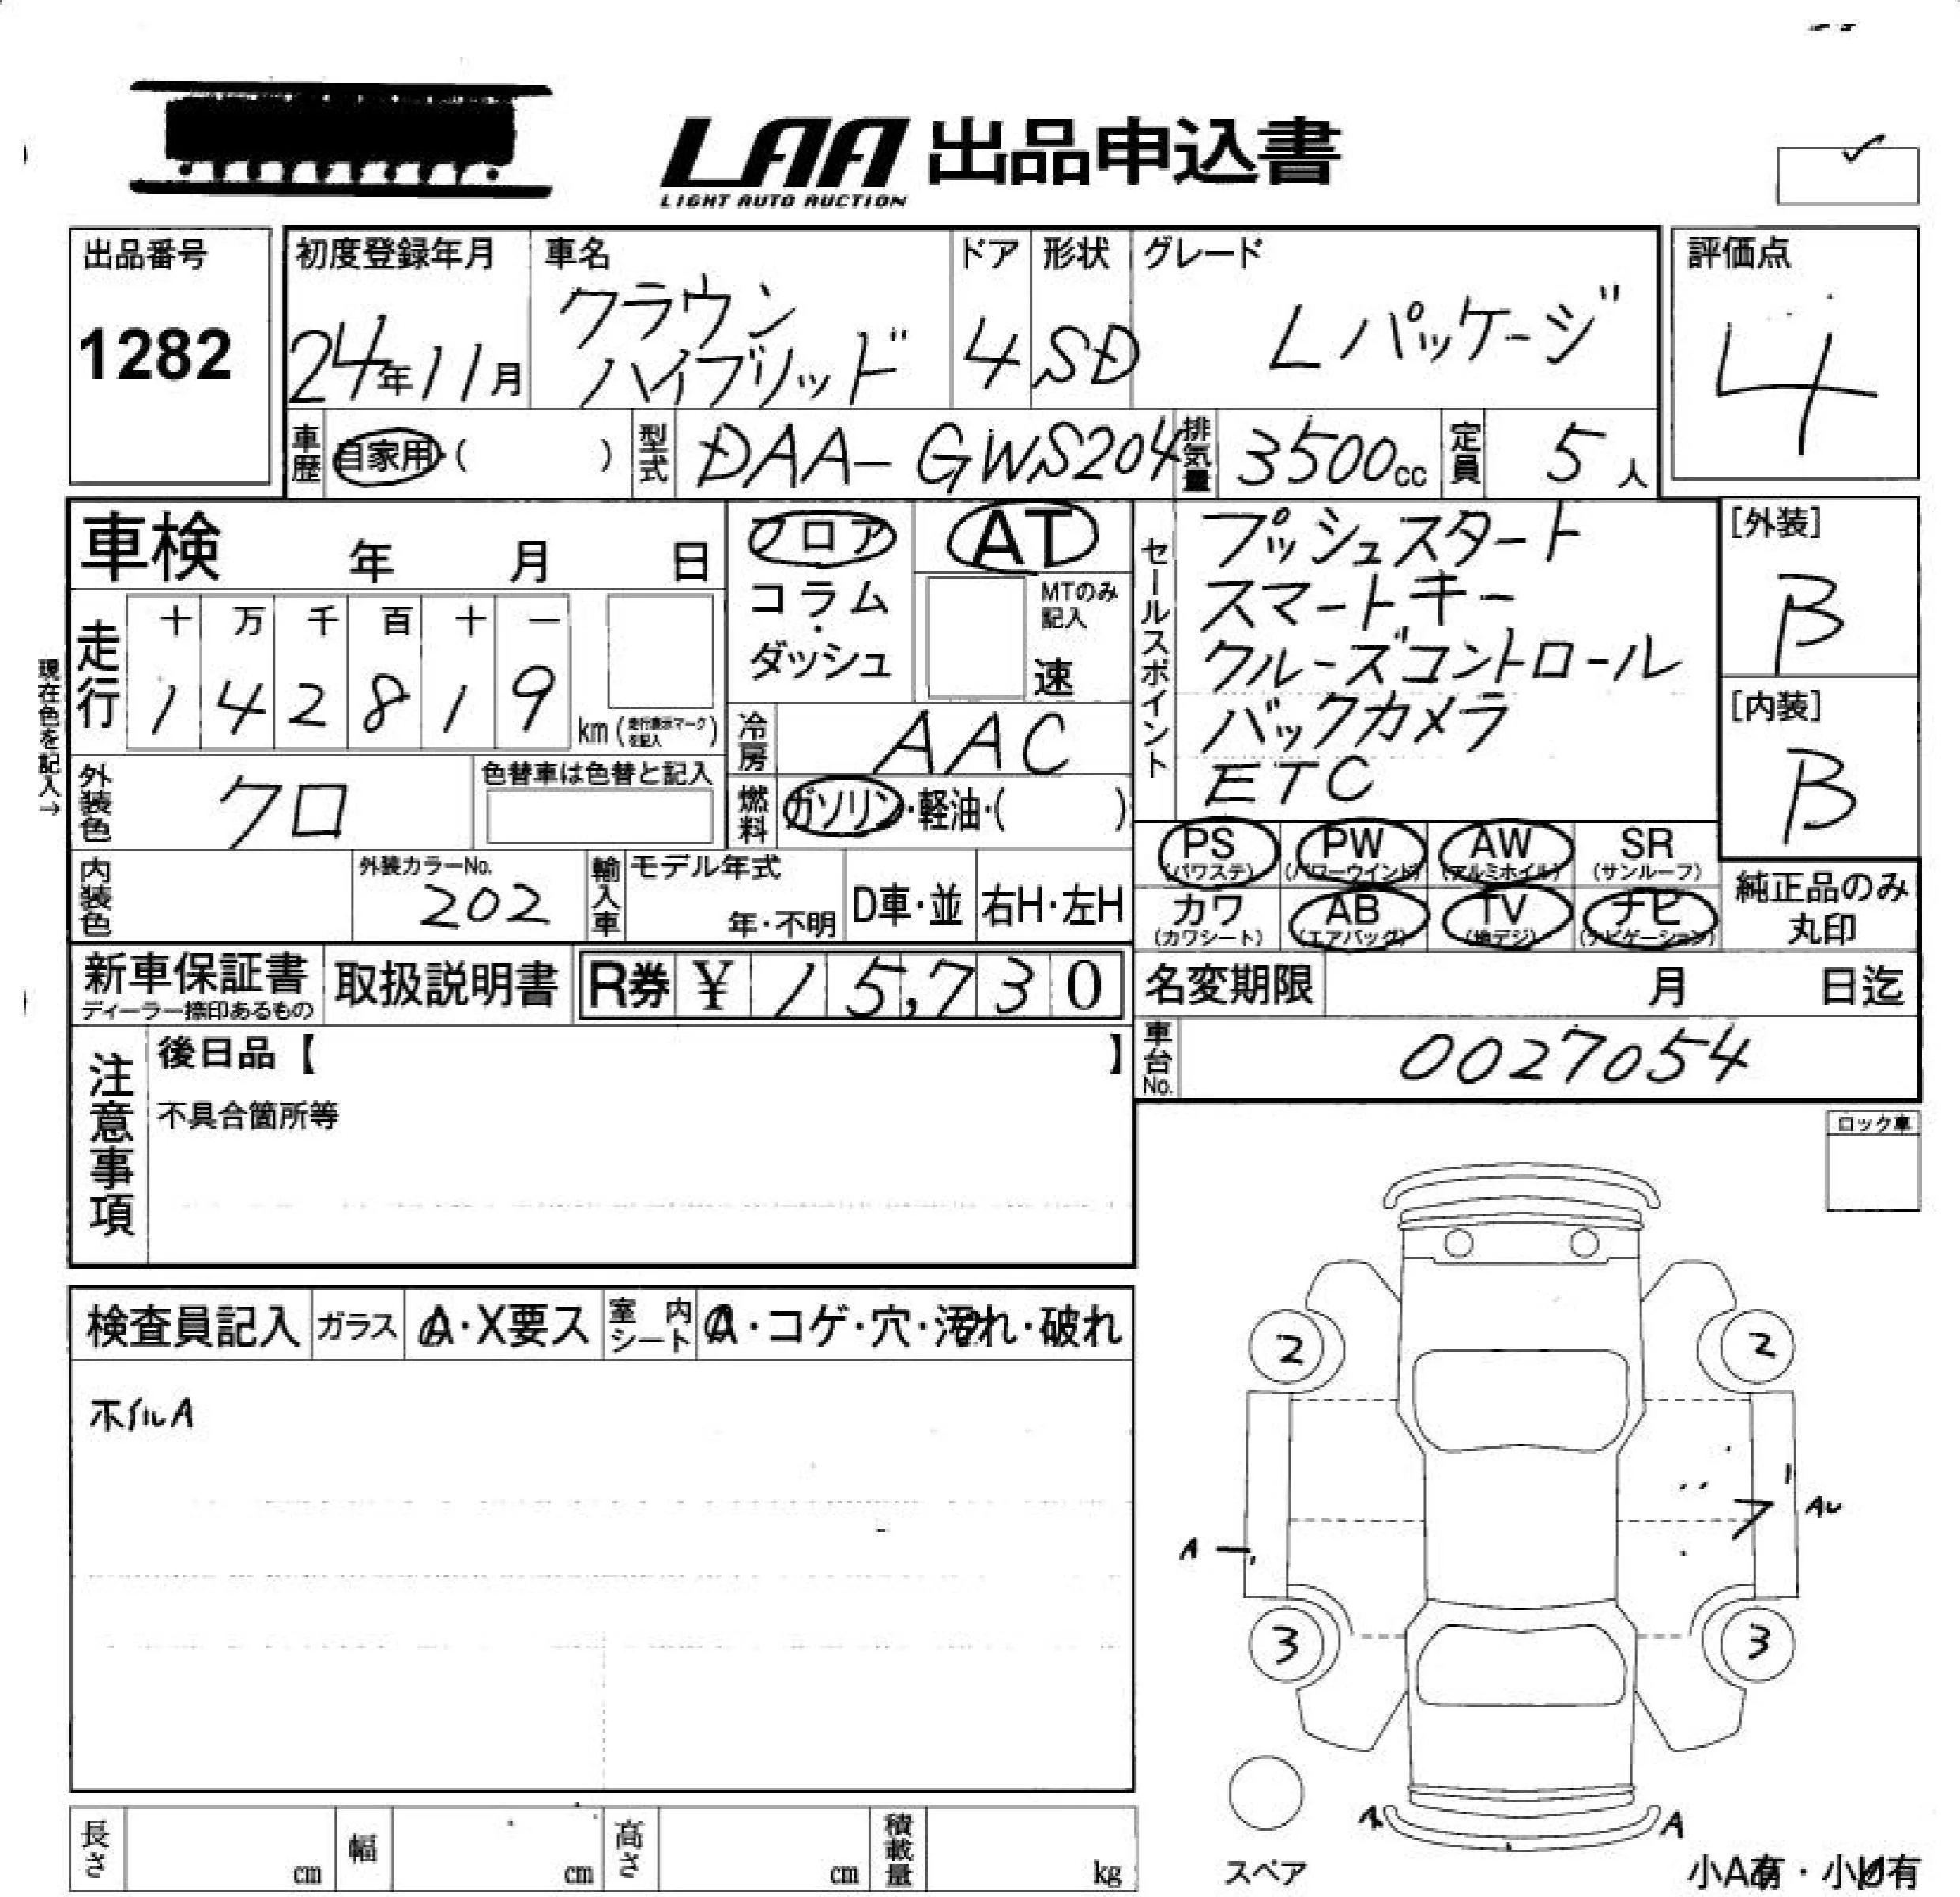 LAA 出品申込書
LIGHT AUTO AUCTION
出品番号
1282
初度登録年月
24年11月
車名
クラウン
ハイブリッド
ドア
4
形状
SD
グレード
Lパッケージ
評価点
4
車歴 自家用・( )
型式 DAA-GWS204
排気量 3500cc
定員 5人
車検 年 月 日
走行
十 万 千 百 十 一
1 4 2 8 1 9
km(走行表示マークを記入)
現在色を記入→
外装色 クロ
色替車は色替と記入
内装色
外装カラーNo.
202
フロア
コラム
・
ダッシュ
AT
MTのみ
記入
速
冷房 AAC
燃料 ガソリン・軽油・( )
輸入車
モデル年式
年・不明
D車・並
右H・左H
セールスポイント
プッシュスタート
スマートキー
クルーズコントロール
バックカメラ
ETC
[外装]
B
[内装]
B
PS (パワステ)
PW (パワーウインド)
AW (アルミホイル)
SR (サンルーフ)
カワ (カワシート)
AB (エアバッグ)
TV (地デジ)
ナビ (ナビゲーション)
純正品のみ
丸印
新車保証書
ディーラー捺印あるもの
取扱説明書
R券 ¥ 15,730
名変期限 月 日迄
車台No. 0027054
注意事項
後日品【 】
不具合箇所等
ロック車
検査員記入
ガラス A・X要ス
室内シート A・コゲ・穴・汚れ・破れ
ホイルA
2
2
A
A
3
3
A
スペア
小A有・小U有
長さ cm
幅 cm
高さ cm
積載量 kg